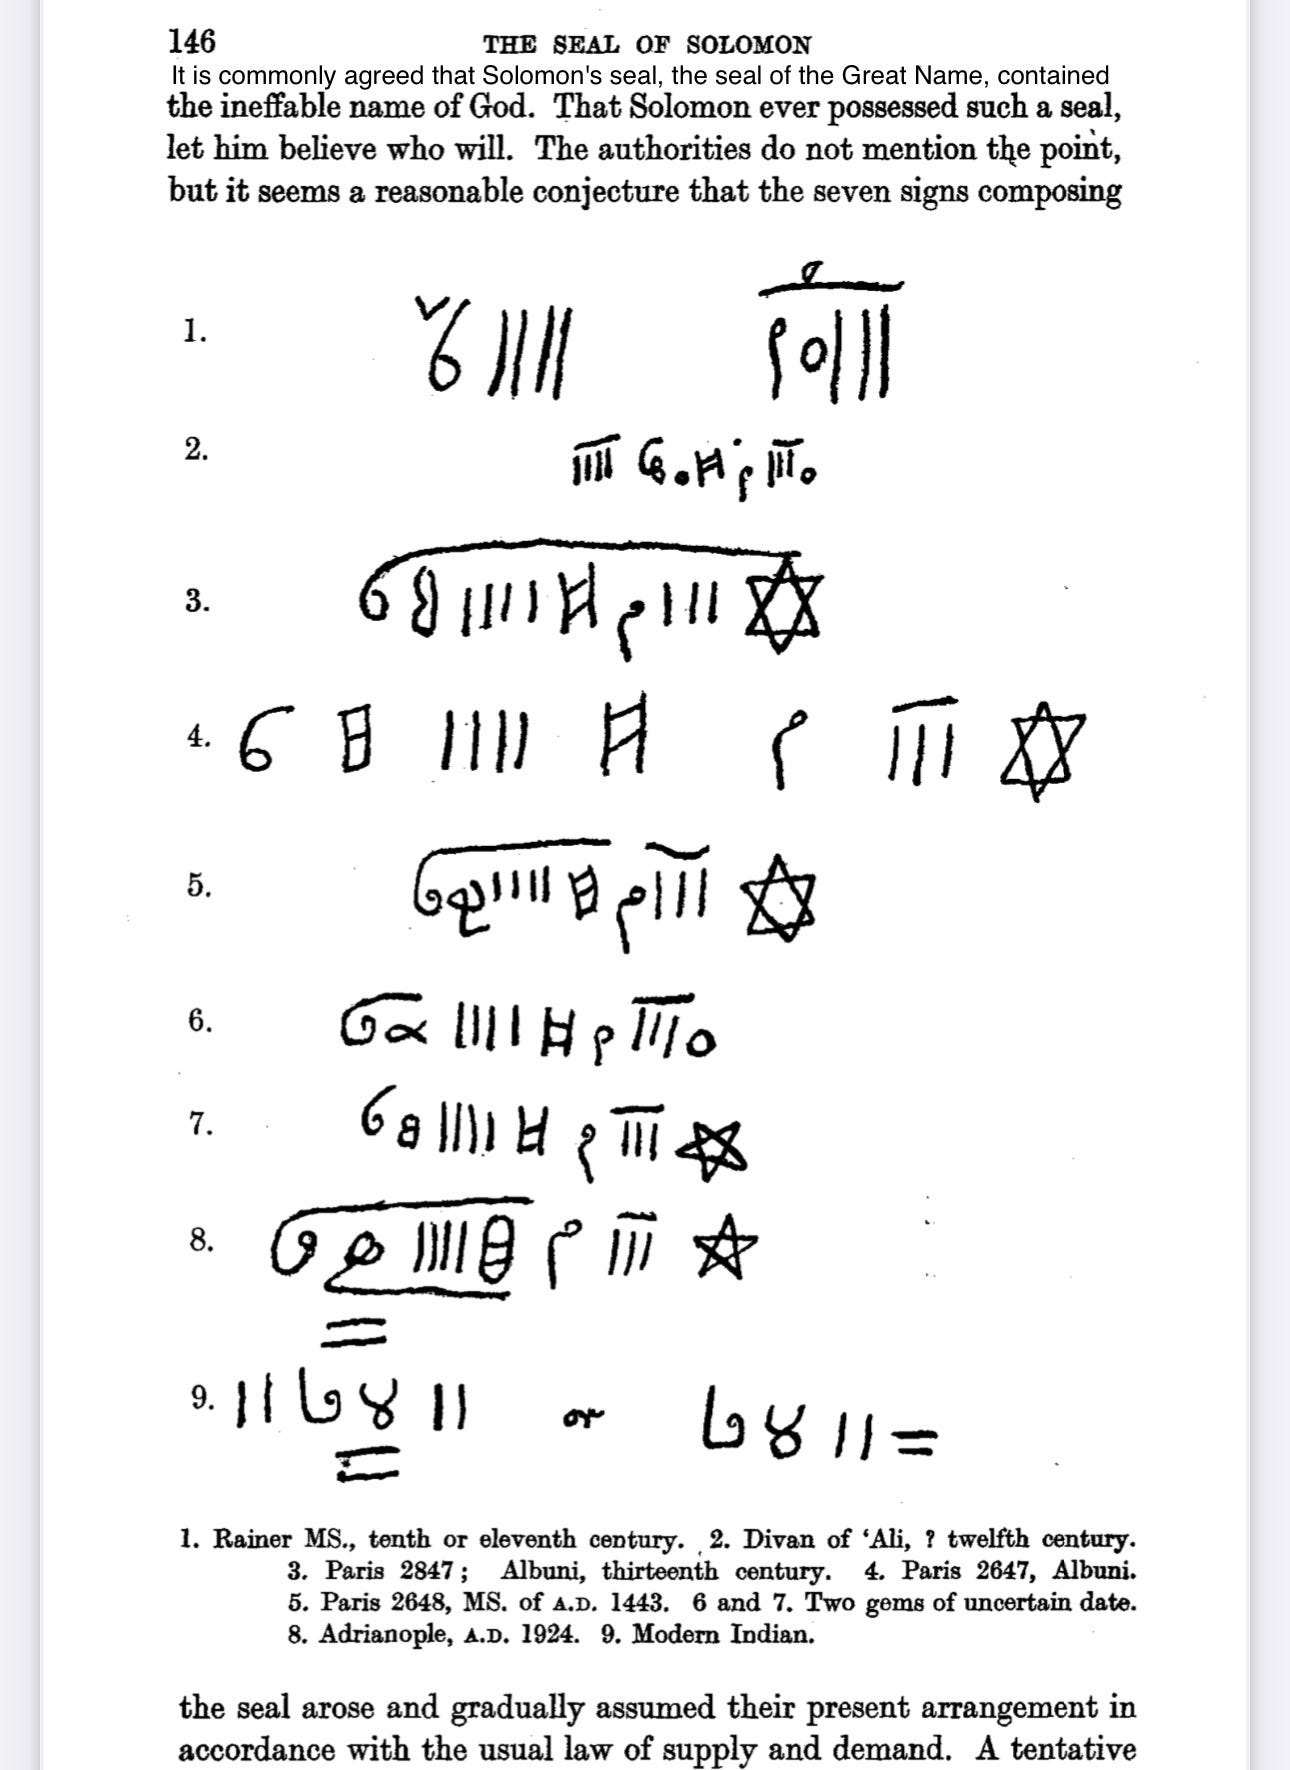 146 THE SEAL OF SOLOMON
It is commonly agreed that Solomon's seal, the seal of the Great Name, contained
the ineffable name of God. That Solomon ever possessed such a seal,
let him believe who will. The authorities do not mention the point,
but it seems a reasonable conjecture that the seven signs composing
1.
2.
3.
4.
5.
6.
7.
8.
9. or
1. Rainer MS., tenth or eleventh century. 2. Divan of ‘Ali, ? twelfth century.
3. Paris 2847; Albuni, thirteenth century. 4. Paris 2647, Albuni.
5. Paris 2648, MS. of A.D. 1443. 6 and 7. Two gems of uncertain date.
8. Adrianople, A.D. 1924. 9. Modern Indian.
the seal arose and gradually assumed their present arrangement in
accordance with the usual law of supply and demand. A tentative